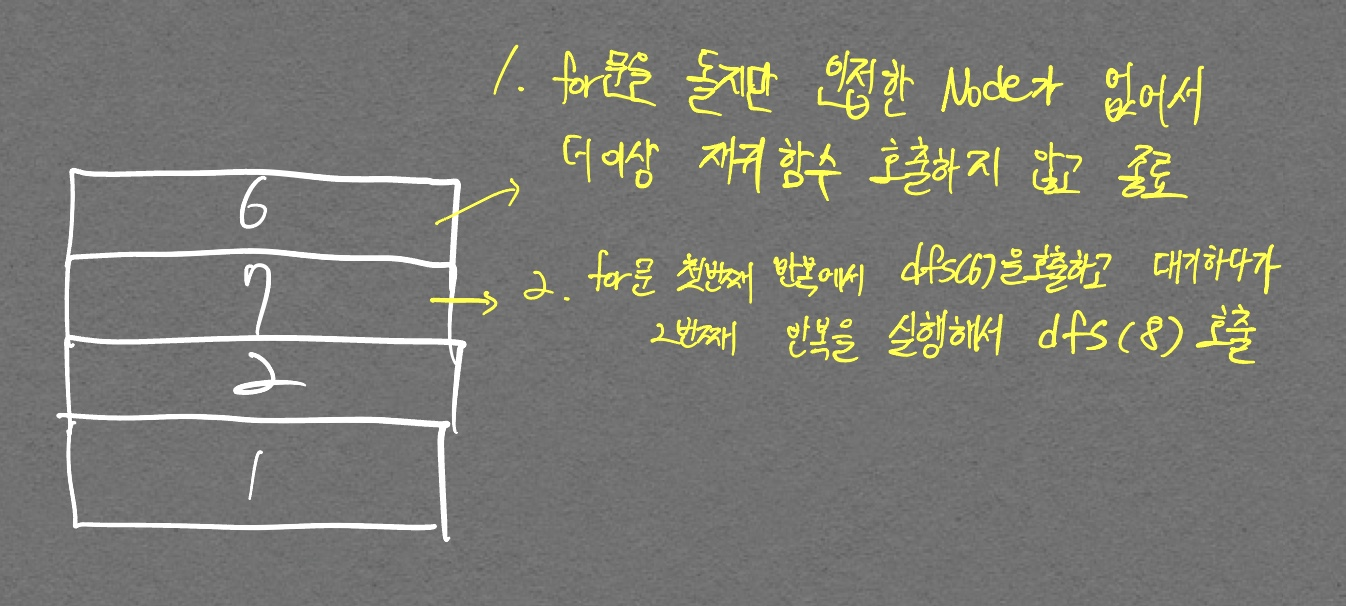 1. for문을 돌지만 인접한 Node가 없어서
더이상 재귀함수 호출하지 않고 종료
6
7
2. for문 첫번째 반복에서 dfs(6)을 호출하고 대기하다가
2번째 반복을 실행해서 dfs(8) 호출
2
1